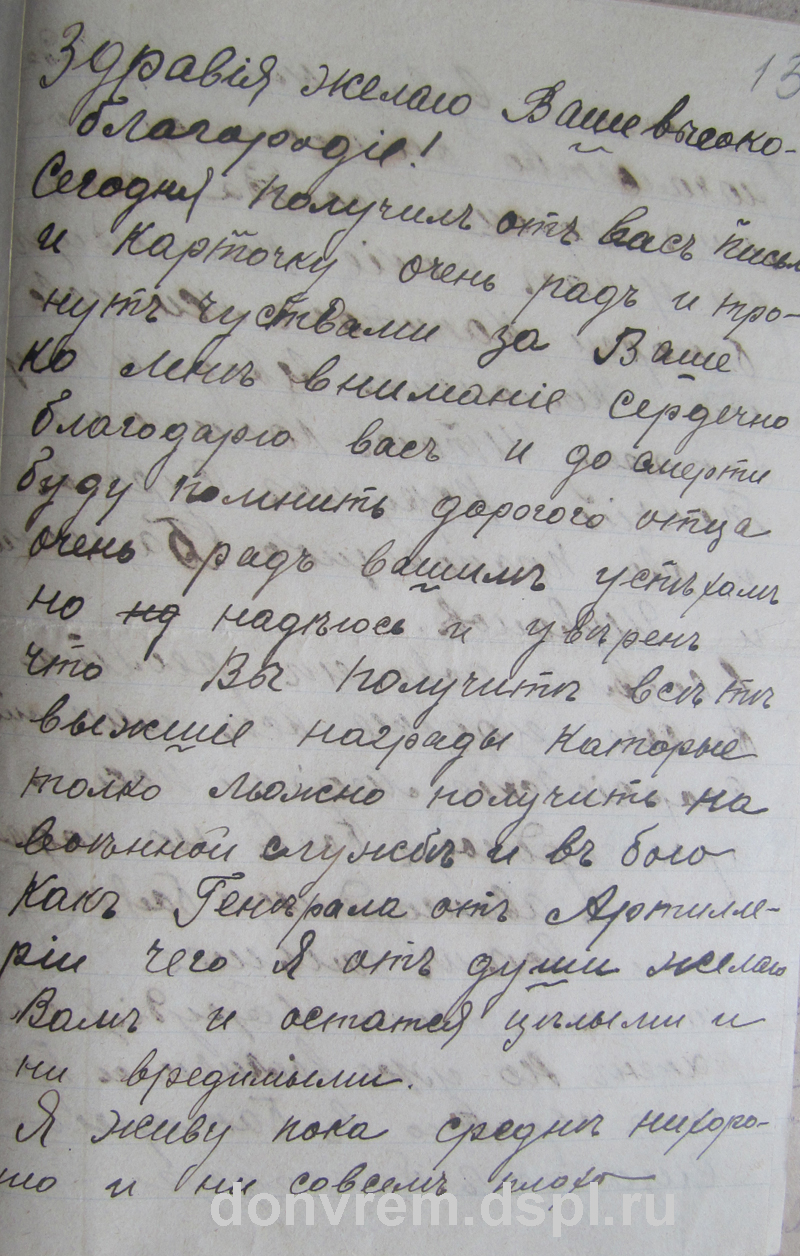 13
Здравія желаю Вашевысоко-
благородіе!
Сегодня получилъ отъ васъ письм
и карточку очень радъ и тро-
нутъ чуствами за Ваше
ко мнѣ вниманіе сердечно
благодарю васъ и до смерти
буду помнить дорогого отца
очень радъ вашимъ успѣхамъ
но надѣюсь и увѣренъ
что Вы получитѣ всѣ тѣ
выжшіе награды каторые
толко можно получить на
воѣнной службѣ и въ бою
Какъ Генѣрала отъ Артилле-
ріи чего Я отъ души желаю
Вамъ и остатся цѣлыми и
ни вредимыми.
Я живу пока среднѣ нихоро-
шо и ни совсемъ плохо
donvrem.dspl.ru